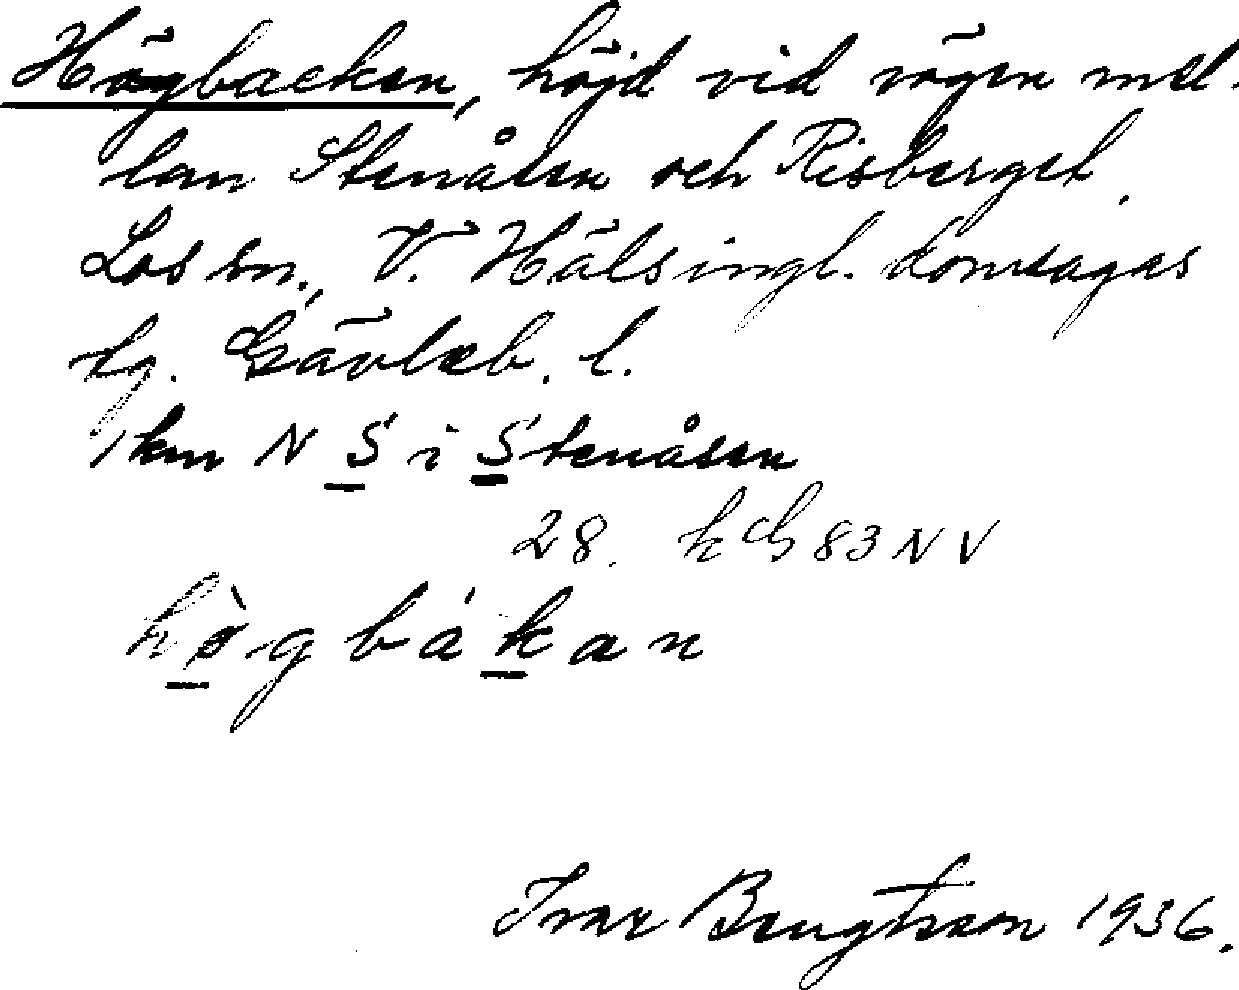 Högbacken, höjd vid vägen mel-
lan Stenåsen och Risberget,
Los sn., V. Hälsingl. domsagas
tg. Gävleb. l.
1 km N S i Stenåsen
28. k G 83 NV
hògbákan
Ivar Bengtsson 1936.